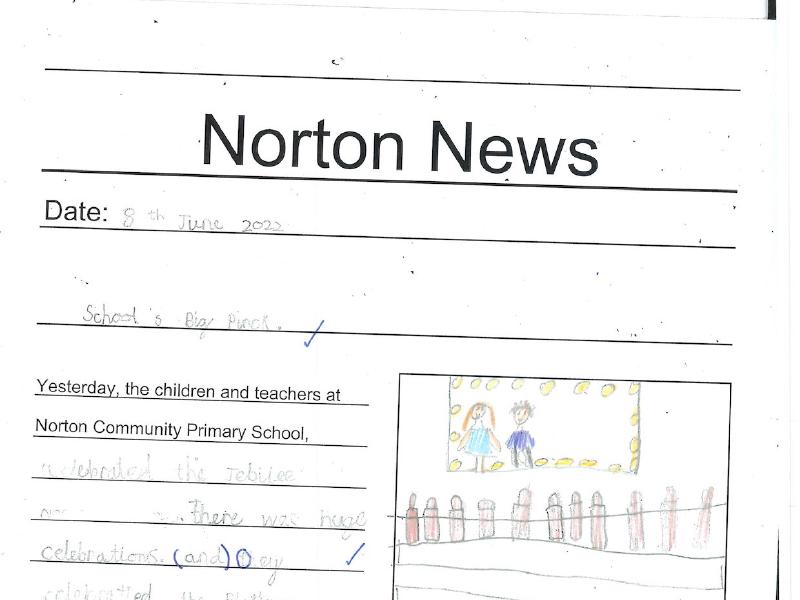 Norton News
Date: 8th June 2022
School's Big Picnic.
Yesterday, the children and teachers at
Norton Community Primary School,
celebrated the Jebilee
there was huge
celebrations. (and)
celebratted the